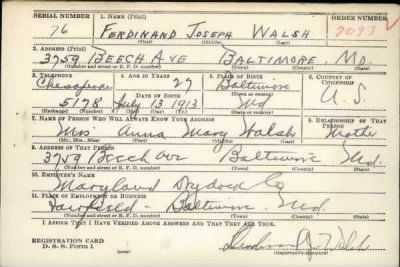 SERIAL NUMBER 1. NAME (Print) ORDER NUMBER
76 FERDINAND JOSEPH WALSH 2093
(First) (Middle) (Last)
2. ADDRESS (Print)
3759 BEECH AVE BALTIMORE, MD.
(Number and street or R. F. D. number) (Town) (County) (State)
3. TELEPHONE 4. AGE IN YEARS 5. PLACE OF BIRTH 6. COUNTRY OF CITIZENSHIP
Chesapeake 27 Baltimore
DATE OF BIRTH
5178 July 13 1913 Md U.S.
(Exchange) (Number) (Mo.) (Day) (Yr.) (State or country)
7. NAME OF PERSON WHO WILL ALWAYS KNOW YOUR ADDRESS 8. RELATIONSHIP OF THAT PERSON
Mrs. Anna Mary Walsh Mother
(Mr., Mrs., Miss) (First) (Middle) (Last)
9. ADDRESS OF THAT PERSON
3759 Beech Ave Baltimore Md.
(Number and street or R. F. D. number) (Town) (County) (State)
10. EMPLOYER'S NAME
Maryland Drydock Co
11. PLACE OF EMPLOYMENT OR BUSINESS
Fairfield - Baltimore Md.
(Number and street or R. F. D. number) (Town) (County) (State)
I AFFIRM THAT I HAVE VERIFIED ABOVE ANSWERS AND THAT THEY ARE TRUE.
REGISTRATION CARD
D. S. S. Form 1 Ferdinand J Walsh
(Registrant's signature)